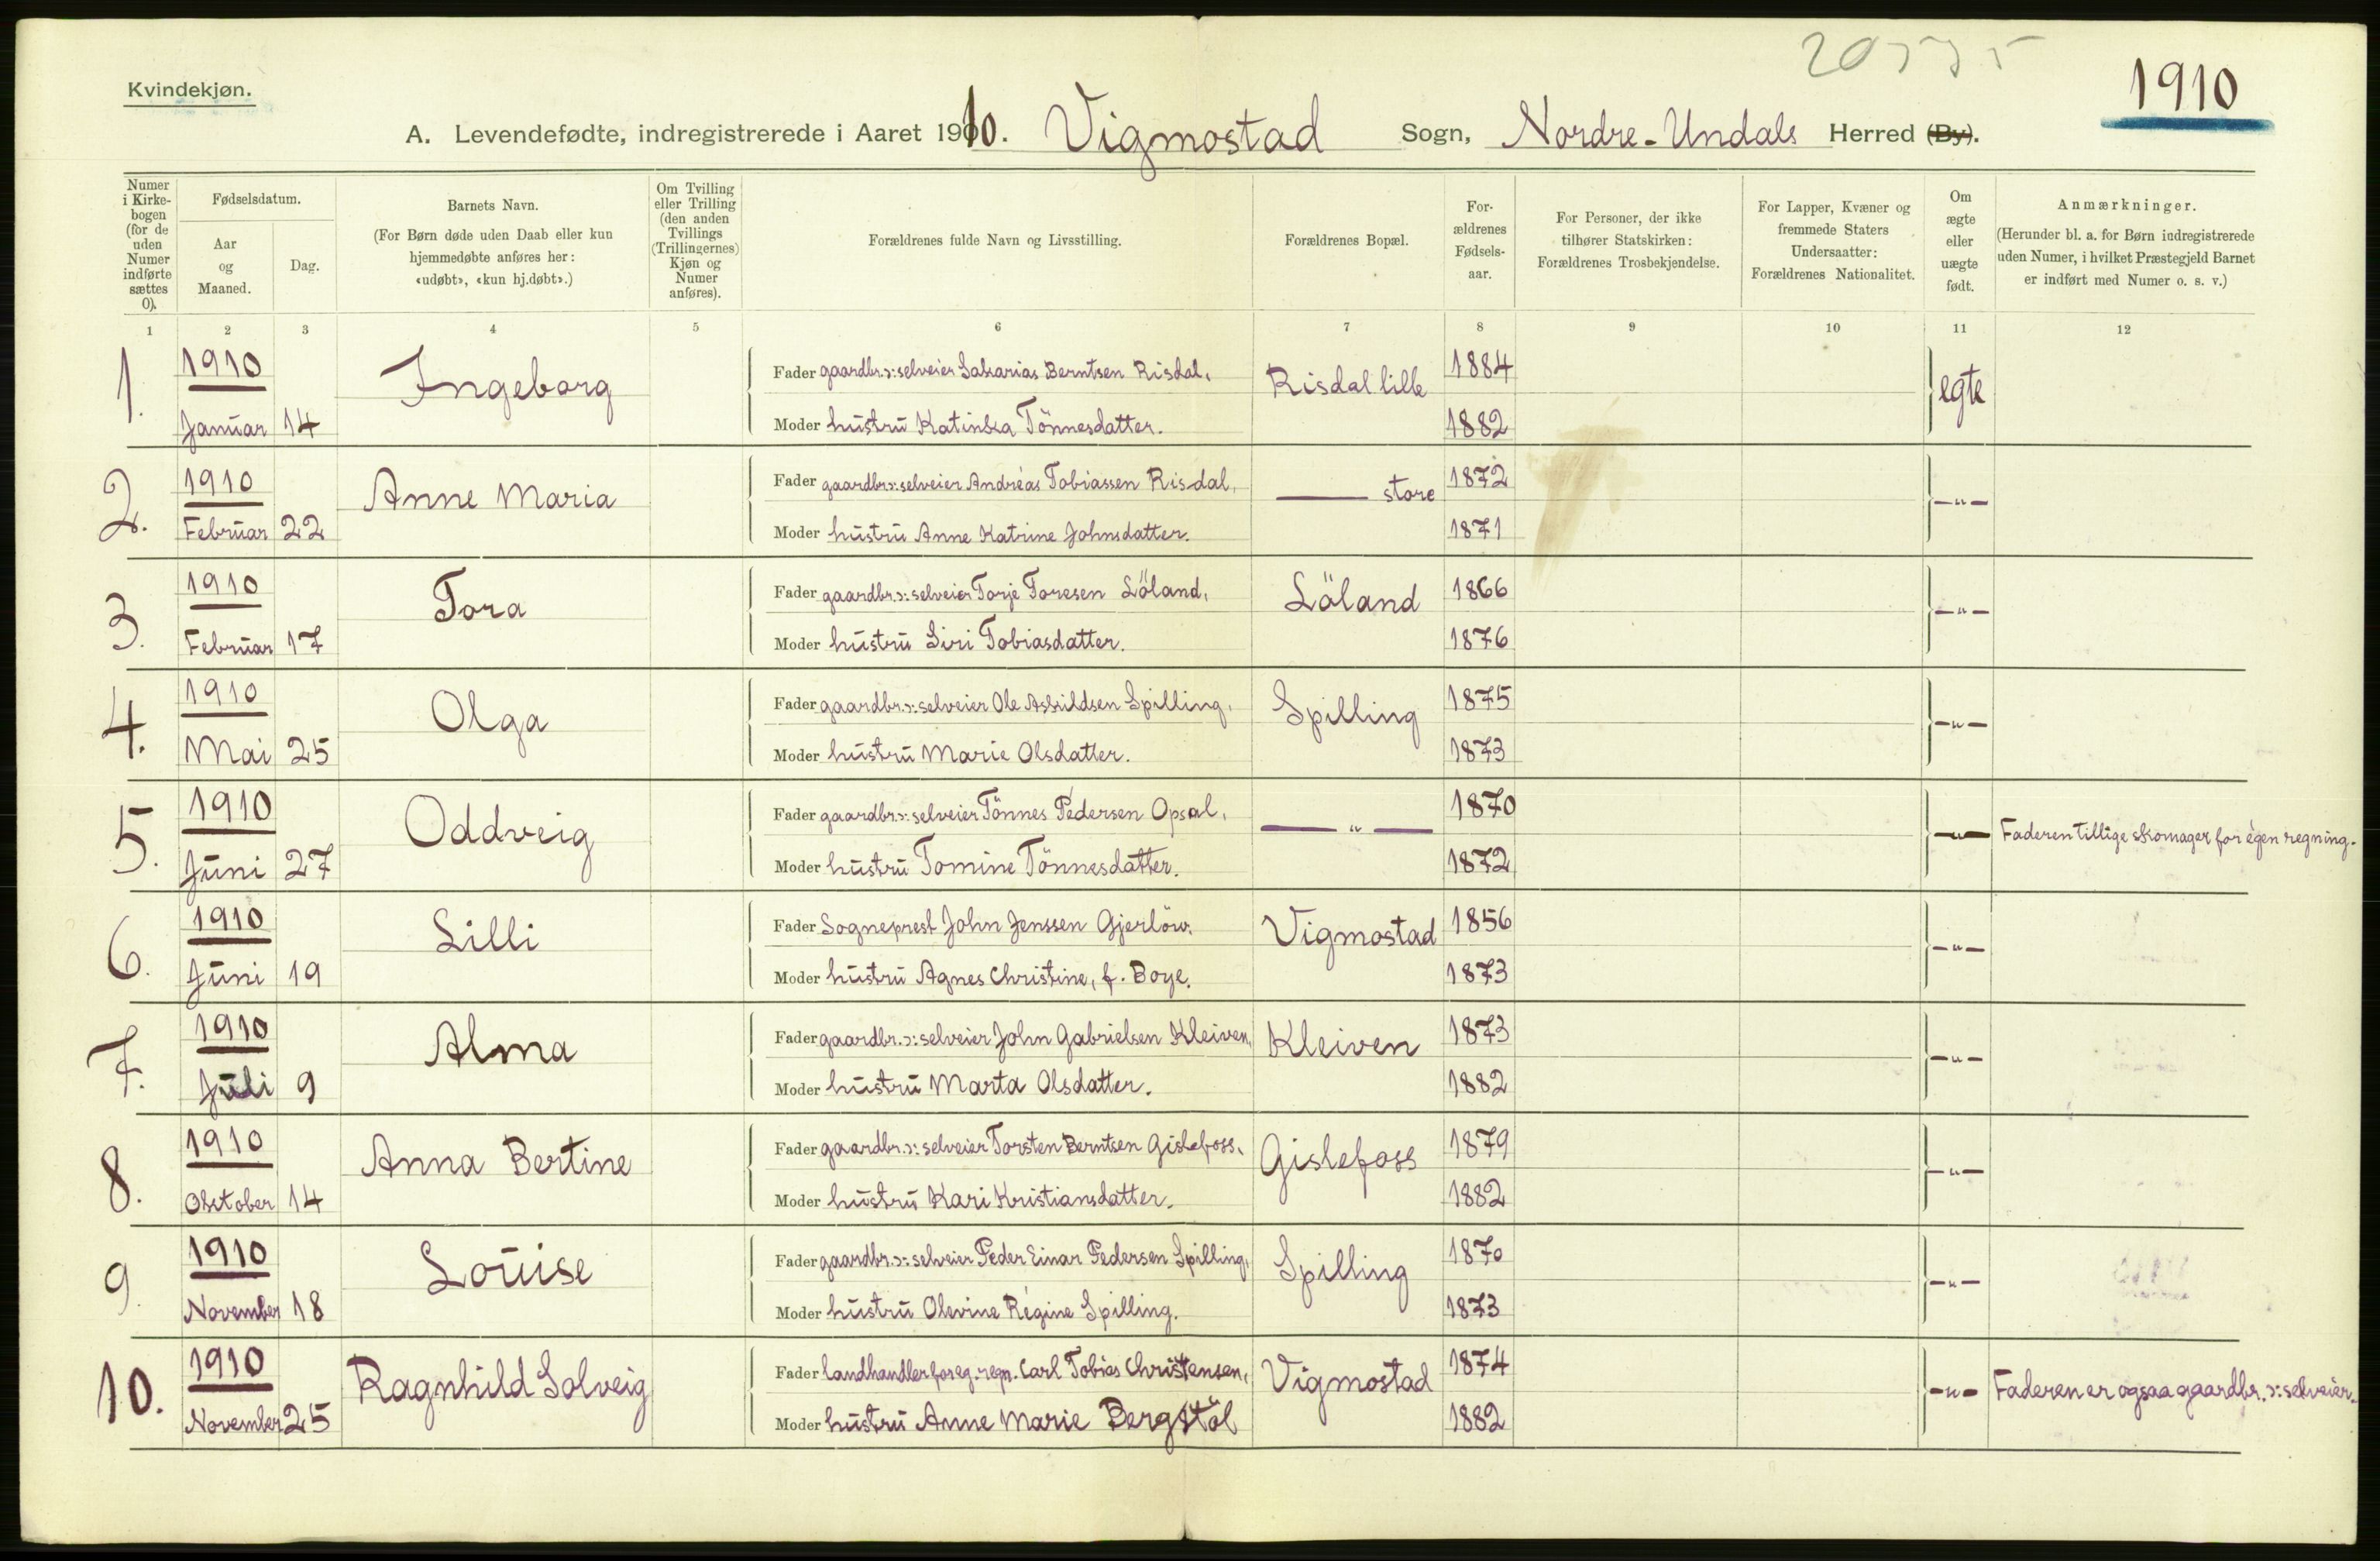 Kvindekjøn.
1910
A. Levendefødte, indregistrerede i Aaret 1910. Vigmostad Sogn, Nordre-Undals Herred (By).
Numer i Kirkebogen (for de uden Numer indførte sættes 0).
Fødselsdatum.
Aar og Maaned.
Dag.
Barnets Navn.
(For Børn døde uden Daab eller kun hjemmedøbte anføres her: «udøbt», «kun hj.døbt».)
Om Tvilling eller Trilling (den anden Tvillings (Trillingernes) Kjøn og Numer anføres).
Forældrenes fulde Navn og Livsstilling.
Forældrenes Bopæl.
For-ældrenes Fødsels-aar.
For Personer, der ikke tilhører Statskirken: Forældrenes Trosbekjendelse.
For Lapper, Kvæner og fremmede Staters Undersaatter: Forældrenes Nationalitet.
Om ægte eller uægte født.
Anmærkninger.
(Herunder bl. a. for Børn indregistrerede uden Numer, i hvilket Præstegjeld Barnet er indført med Numer o. s. v.)
1 2 3 4 5 6 7 8 9 10 11 12
1. 1910 Ingeborg Fader gaardbr. ɔ: selveier Sakarias Berntsen Risdal, Risdal lille 1884 egte
Januar 14 Moder hustru Katinka Tönnesdatter. 1882
2. 1910 Anne Maria Fader gaardbr. ɔ: selveier Andreas Tobiassen Risdal, — store 1872 —"—
Februar 22 Moder hustru Anne Katrine Johnsdatter. 1871
3. 1910 Tora Fader gaardbr. ɔ: selveier Torje Toresen Löland, Löland 1866 —"—
Februar 17 Moder hustru Siri Tobiasdatter. 1876
4. 1910 Olga Fader gaardbr. ɔ: selveier Ole Askildsen Spilling, Spilling 1875 —"—
Mai 25 Moder hustru Marie Olsdatter. 1873
5. 1910 Oddveig Fader gaardbr. ɔ: selveier Tönnes Pedersen Opsal, —"— 1870 —"— Faderen tillige skomager for egen regning.
Juni 27 Moder hustru Tomine Tönnesdatter. 1872
6. 1910 Lilli Fader Sogneprest John Jenssen Gjerlöw. Vigmostad 1856 —"—
Juni 19 Moder hustru Agnes Christine, f. Boye. 1873
7. 1910 Alma Fader gaardbr. ɔ: selveier John Gabrielsen Kleiven, Kleiven 1873 —"—
Juli 9 Moder hustru Marta Olsdatter. 1882
8. 1910 Anna Bertine Fader gaardbr. ɔ: selveier Torsten Berntsen Gislefoss, Gislefoss 1879 —"—
Oktober 14 Moder hustru Kari Kristiansdatter. 1882
9. 1910 Louise Fader gaardbr. ɔ: selveier Peder Einar Pedersen Spilling, Spilling 1870 —"—
November 18 Moder hustru Olevine Regine Spilling. 1873
10. 1910 Ragnhild Solveig Fader landhandler for eg. regn. Carl Tobias Christensen, Vigmostad 1874 —"— Faderen er ogsaa gaardbr. ɔ: selveier.
November 25 Moder hustru Anne Marie Bergstöl 1882